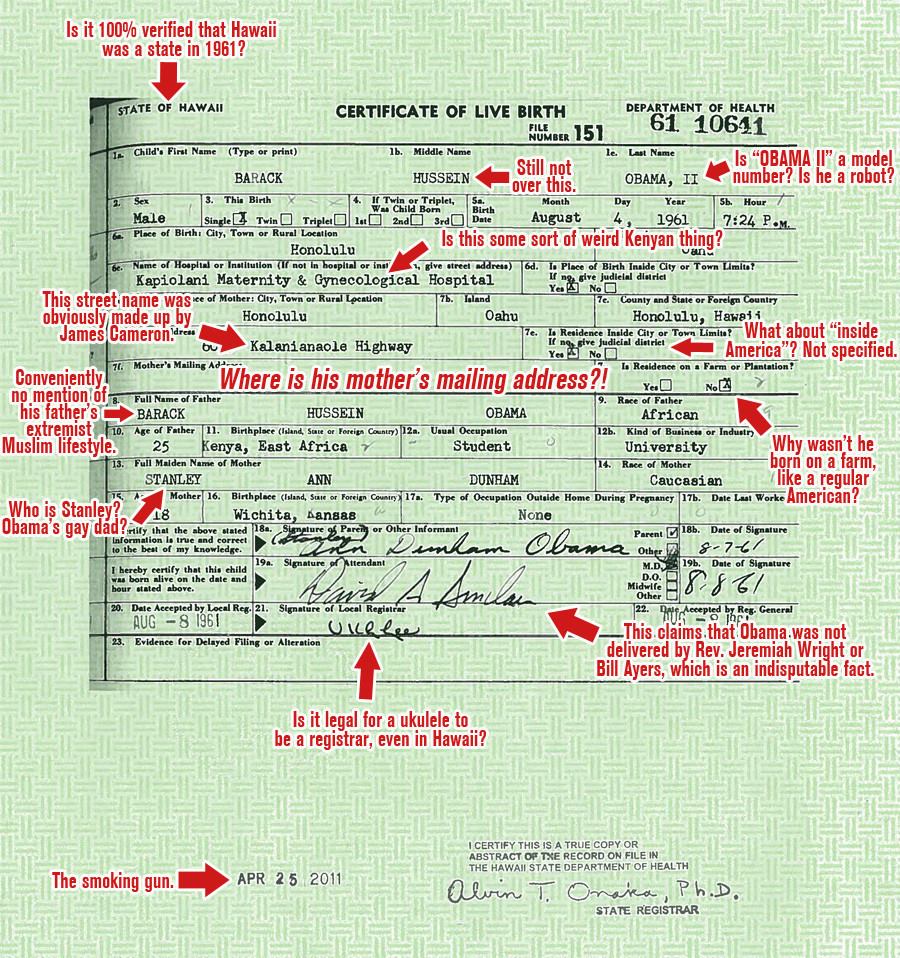 Is it 100% verified that Hawaii
was a state in 1961?
STATE OF HAWAII
CERTIFICATE OF LIVE BIRTH
DEPARTMENT OF HEALTH
FILE
NUMBER 151
61 10641
1a. Child's First Name (Type or print)
1b. Middle Name
1c. Last Name
BARACK
HUSSEIN
OBAMA, II
Still not
over this.
Is “OBAMA II” a model
number? Is he a robot?
2. Sex
Male
3. This Birth
Single X Twin Triplet
4. If Twin or Triplet,
Was Child Born
1st 2nd 3rd
5a. Birth Date
Month Day Year
August 4, 1961
5b. Hour
7:24 P.M.
6a. Place of Birth: City, Town or Rural Location
Honolulu
Oahu
Is this some sort of weird Kenyan thing?
6c. Name of Hospital or Institution (If not in hospital or inst, give street address)
Kapiolani Maternity & Gynecological Hospital
6d. Is Place of Birth Inside City or Town Limits?
If no, give judicial district
Yes X No
This street name was
obviously made up by
James Cameron.
ce of Mother: City, Town or Rural Location
Honolulu
7b. Island
Oahu
7c. County and State or Foreign Country
Honolulu, Hawaii
Address
Kalanianaole Highway
7e. Is Residence Inside City or Town Limits?
If no, give judicial district
Yes X No
What about “inside
America”? Not specified.
7f. Mother's Mailing Address
Where is his mother's mailing address?!
Is Residence on a Farm or Plantation?
Yes No X
Conveniently
no mention of
his father's
extremist
Muslim lifestyle.
8. Full Name of Father
BARACK HUSSEIN OBAMA
9. Race of Father
African
10. Age of Father
25
11. Birthplace (Island, State or Foreign Country)
Kenya, East Africa
12a. Usual Occupation
Student
12b. Kind of Business or Industry
University
Why wasn't he
born on a farm,
like a regular
American?
13. Full Maiden Name of Mother
STANLEY ANN DUNHAM
14. Race of Mother
Caucasian
Who is Stanley?
Obama's gay dad?
15. Mother
18
16. Birthplace (Island, State or Foreign Country)
Wichita, Kansas
17a. Type of Occupation Outside Home During Pregnancy
None
17b. Date Last Worke
certify that the above stated
information is true and correct
to the best of my knowledge.
18a. Signature of Parent or Other Informant
(Stanley) Ann Dunham Obama
Parent
Other
18b. Date of Signature
8-7-61
I hereby certify that this child
was born alive on the date and
hour stated above.
19a. Signature of Attendant
David A Sinclair
M.D.
D.O.
Midwife
Other
19b. Date of Signature
8-8-61
20. Date Accepted by Local Reg.
AUG -8 1961
21. Signature of Local Registrar
UKLlee
22. Date Accepted by Reg. General
AUG -8 1961
This claims that Obama was not
delivered by Rev. Jeremiah Wright or
Bill Ayers, which is an indisputable fact.
23. Evidence for Delayed Filing or Alteration
Is it legal for a ukulele to
be a registrar, even in Hawaii?
The smoking gun.
APR 25 2011
I CERTIFY THIS IS A TRUE COPY OR
ABSTRACT OF TXE RECORD ON FILE IN
THE HAWAII STATE DEPARTMENT OF HEALTH
Alvin T. Onaka, Ph.D.
STATE REGISTRAR